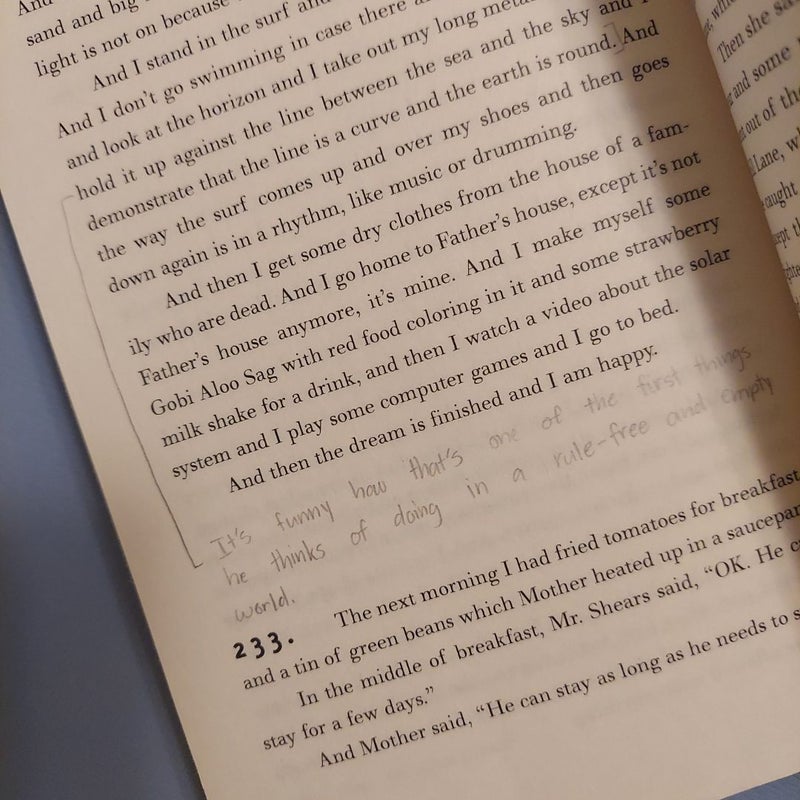 And
sand and big
light is not on because
And I stand in the surf and
And I don't go swimming in case there
and look at the horizon and I take out my long metal
hold it up against the line between the sea and the sky and I
demonstrate that the line is a curve and the earth is round. And
the way the surf comes up and over my shoes and then goes
down again is in a rhythm, like music or drumming.
And then I get some dry clothes from the house of a fam-
ily who are dead. And I go home to Father's house, except it's not
Father's house anymore, it's mine. And I make myself some
Gobi Aloo Sag with red food coloring in it and some strawberry
milk shake for a drink, and then I watch a video about the solar
system and I play some computer games and I go to bed.
And then the dream is finished and I am happy.
It's funny how that's one of the first things
he thinks of doing in a rule-free and empty
world.
233. The next morning I had fried tomatoes for breakfast
and a tin of green beans which Mother heated up in a saucepan
In the middle of breakfast, Mr. Shears said, "OK. He
stay for a few days."
And Mother said, "He can stay as long as he needs to
Then she
and some
out of the
Lane,
caught